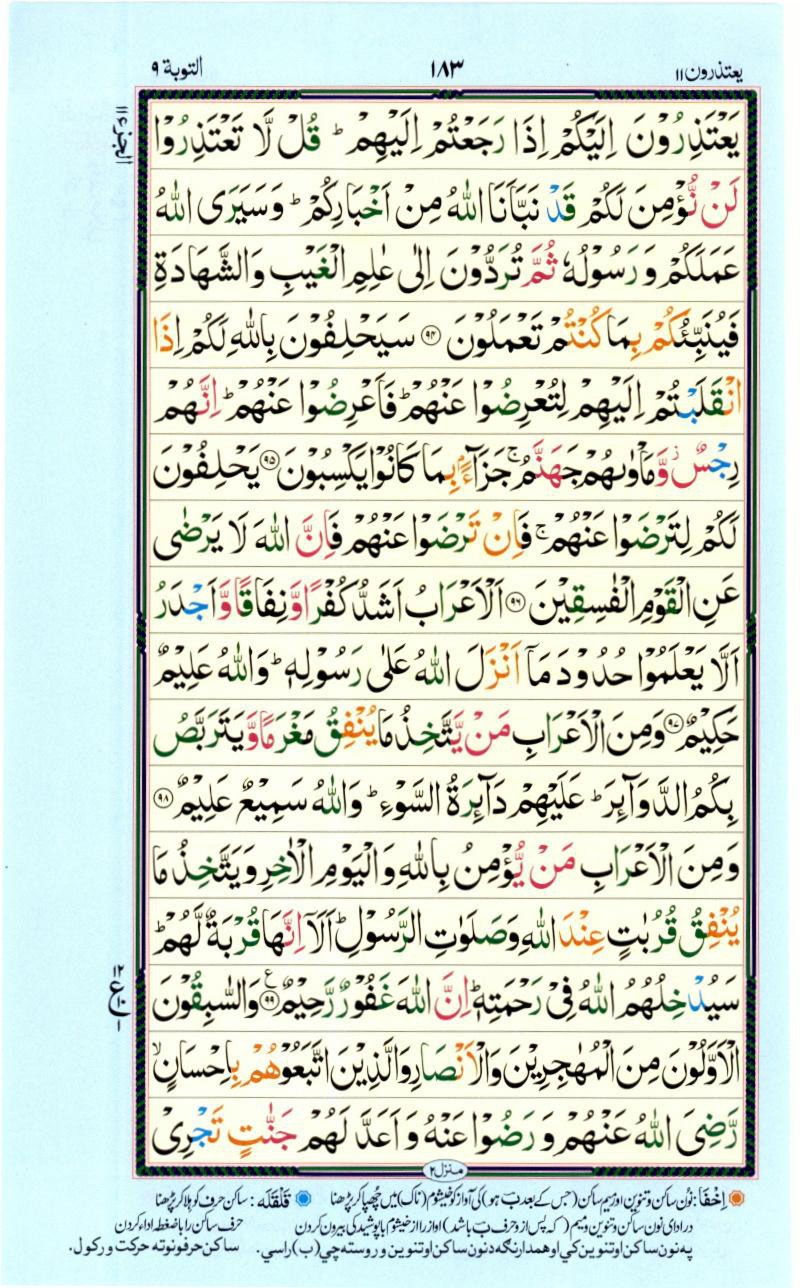 یعتذرون ۱۱ ۱۸۳ التوبة ۹
الجزء ۱۱
یَعْتَذِرُوْنَ اِلَیْكُمْ اِذَا رَجَعْتُمْ اِلَیْهِمْ ؕ قُلْ لَّا تَعْتَذِرُوْا
لَنْ نُّؤْمِنَ لَكُمْ قَدْ نَبَّاَنَا اللّٰهُ مِنْ اَخْبَارِكُمْ ؕ وَ سَیَرَی اللّٰهُ
عَمَلَكُمْ وَ رَسُوْلُهٗ ثُمَّ تُرَدُّوْنَ اِلٰی عٰلِمِ الْغَیْبِ وَ الشَّهَادَةِ
فَیُنَبِّئُكُمْ بِمَا كُنْتُمْ تَعْمَلُوْنَ ﴿۹۴﴾ سَیَحْلِفُوْنَ بِاللّٰهِ لَكُمْ اِذَا
انْقَلَبْتُمْ اِلَیْهِمْ لِتُعْرِضُوْا عَنْهُمْ ؕ فَاَعْرِضُوْا عَنْهُمْ ؕ اِنَّهُمْ
رِجْسٌ ؗ وَّ مَاْوٰىهُمْ جَهَنَّمُ ۚ جَزَآءًۢ بِمَا كَانُوْا یَكْسِبُوْنَ ﴿۹۵﴾ یَحْلِفُوْنَ
لَكُمْ لِتَرْضَوْا عَنْهُمْ ۚ فَاِنْ تَرْضَوْا عَنْهُمْ فَاِنَّ اللّٰهَ لَا یَرْضٰی
عَنِ الْقَوْمِ الْفٰسِقِیْنَ ﴿۹۶﴾ اَلْاَعْرَابُ اَشَدُّ كُفْرًا وَّ نِفَاقًا وَّ اَجْدَرُ
اَلَّا یَعْلَمُوْا حُدُوْدَ مَاۤ اَنْزَلَ اللّٰهُ عَلٰی رَسُوْلِهٖ ؕ وَ اللّٰهُ عَلِیْمٌ
حَكِیْمٌ ﴿۹۷﴾ وَ مِنَ الْاَعْرَابِ مَنْ یَّتَّخِذُ مَا یُنْفِقُ مَغْرَمًا وَّ یَتَرَبَّصُ
بِكُمُ الدَّوَآئِرَ ؕ عَلَیْهِمْ دَآئِرَةُ السَّوْءِ ؕ وَ اللّٰهُ سَمِیْعٌ عَلِیْمٌ ﴿۹۸﴾
وَ مِنَ الْاَعْرَابِ مَنْ یُّؤْمِنُ بِاللّٰهِ وَ الْیَوْمِ الْاٰخِرِ وَ یَتَّخِذُ مَا
یُنْفِقُ قُرُبٰتٍ عِنْدَ اللّٰهِ وَ صَلَوٰتِ الرَّسُوْلِ ؕ اَلَاۤ اِنَّهَا قُرْبَةٌ لَّهُمْ ؕ
سَیُدْخِلُهُمُ اللّٰهُ فِیْ رَحْمَتِهٖ ؕ اِنَّ اللّٰهَ غَفُوْرٌ رَّحِیْمٌ ﴿۹۹﴾ وَ السّٰبِقُوْنَ
۱۲ ع ۱
الْاَوَّلُوْنَ مِنَ الْمُهٰجِرِیْنَ وَ الْاَنْصَارِ وَ الَّذِیْنَ اتَّبَعُوْهُمْ بِاِحْسَانٍ ۙ
رَّضِیَ اللّٰهُ عَنْهُمْ وَ رَضُوْا عَنْهُ وَ اَعَدَّ لَهُمْ جَنّٰتٍ تَجْرِیْ
منزل ۲
اِخْفَا: نون ساکن و تنوین اور میم ساکن (جس کے بعد ب ہو) کی آواز کو خیشوم (ناک) میں چھپا کر پڑھنا قَلْقَلَه: ساکن حرف کو ہلا کر پڑھنا
در ادای نون ساکن و تنوین و میم (که پس از و حرف ب باشد) آواز را از خیشوم با پوشیدگی بیرون کردن حرف ساکن را با ضغطه اداء کردن
په نون ساکن او تنوین کي او همدارنګه د نون ساکن او تنوین وروسته چي (ب) راسي. ساکن حرفونو ته حرکت ورکول.